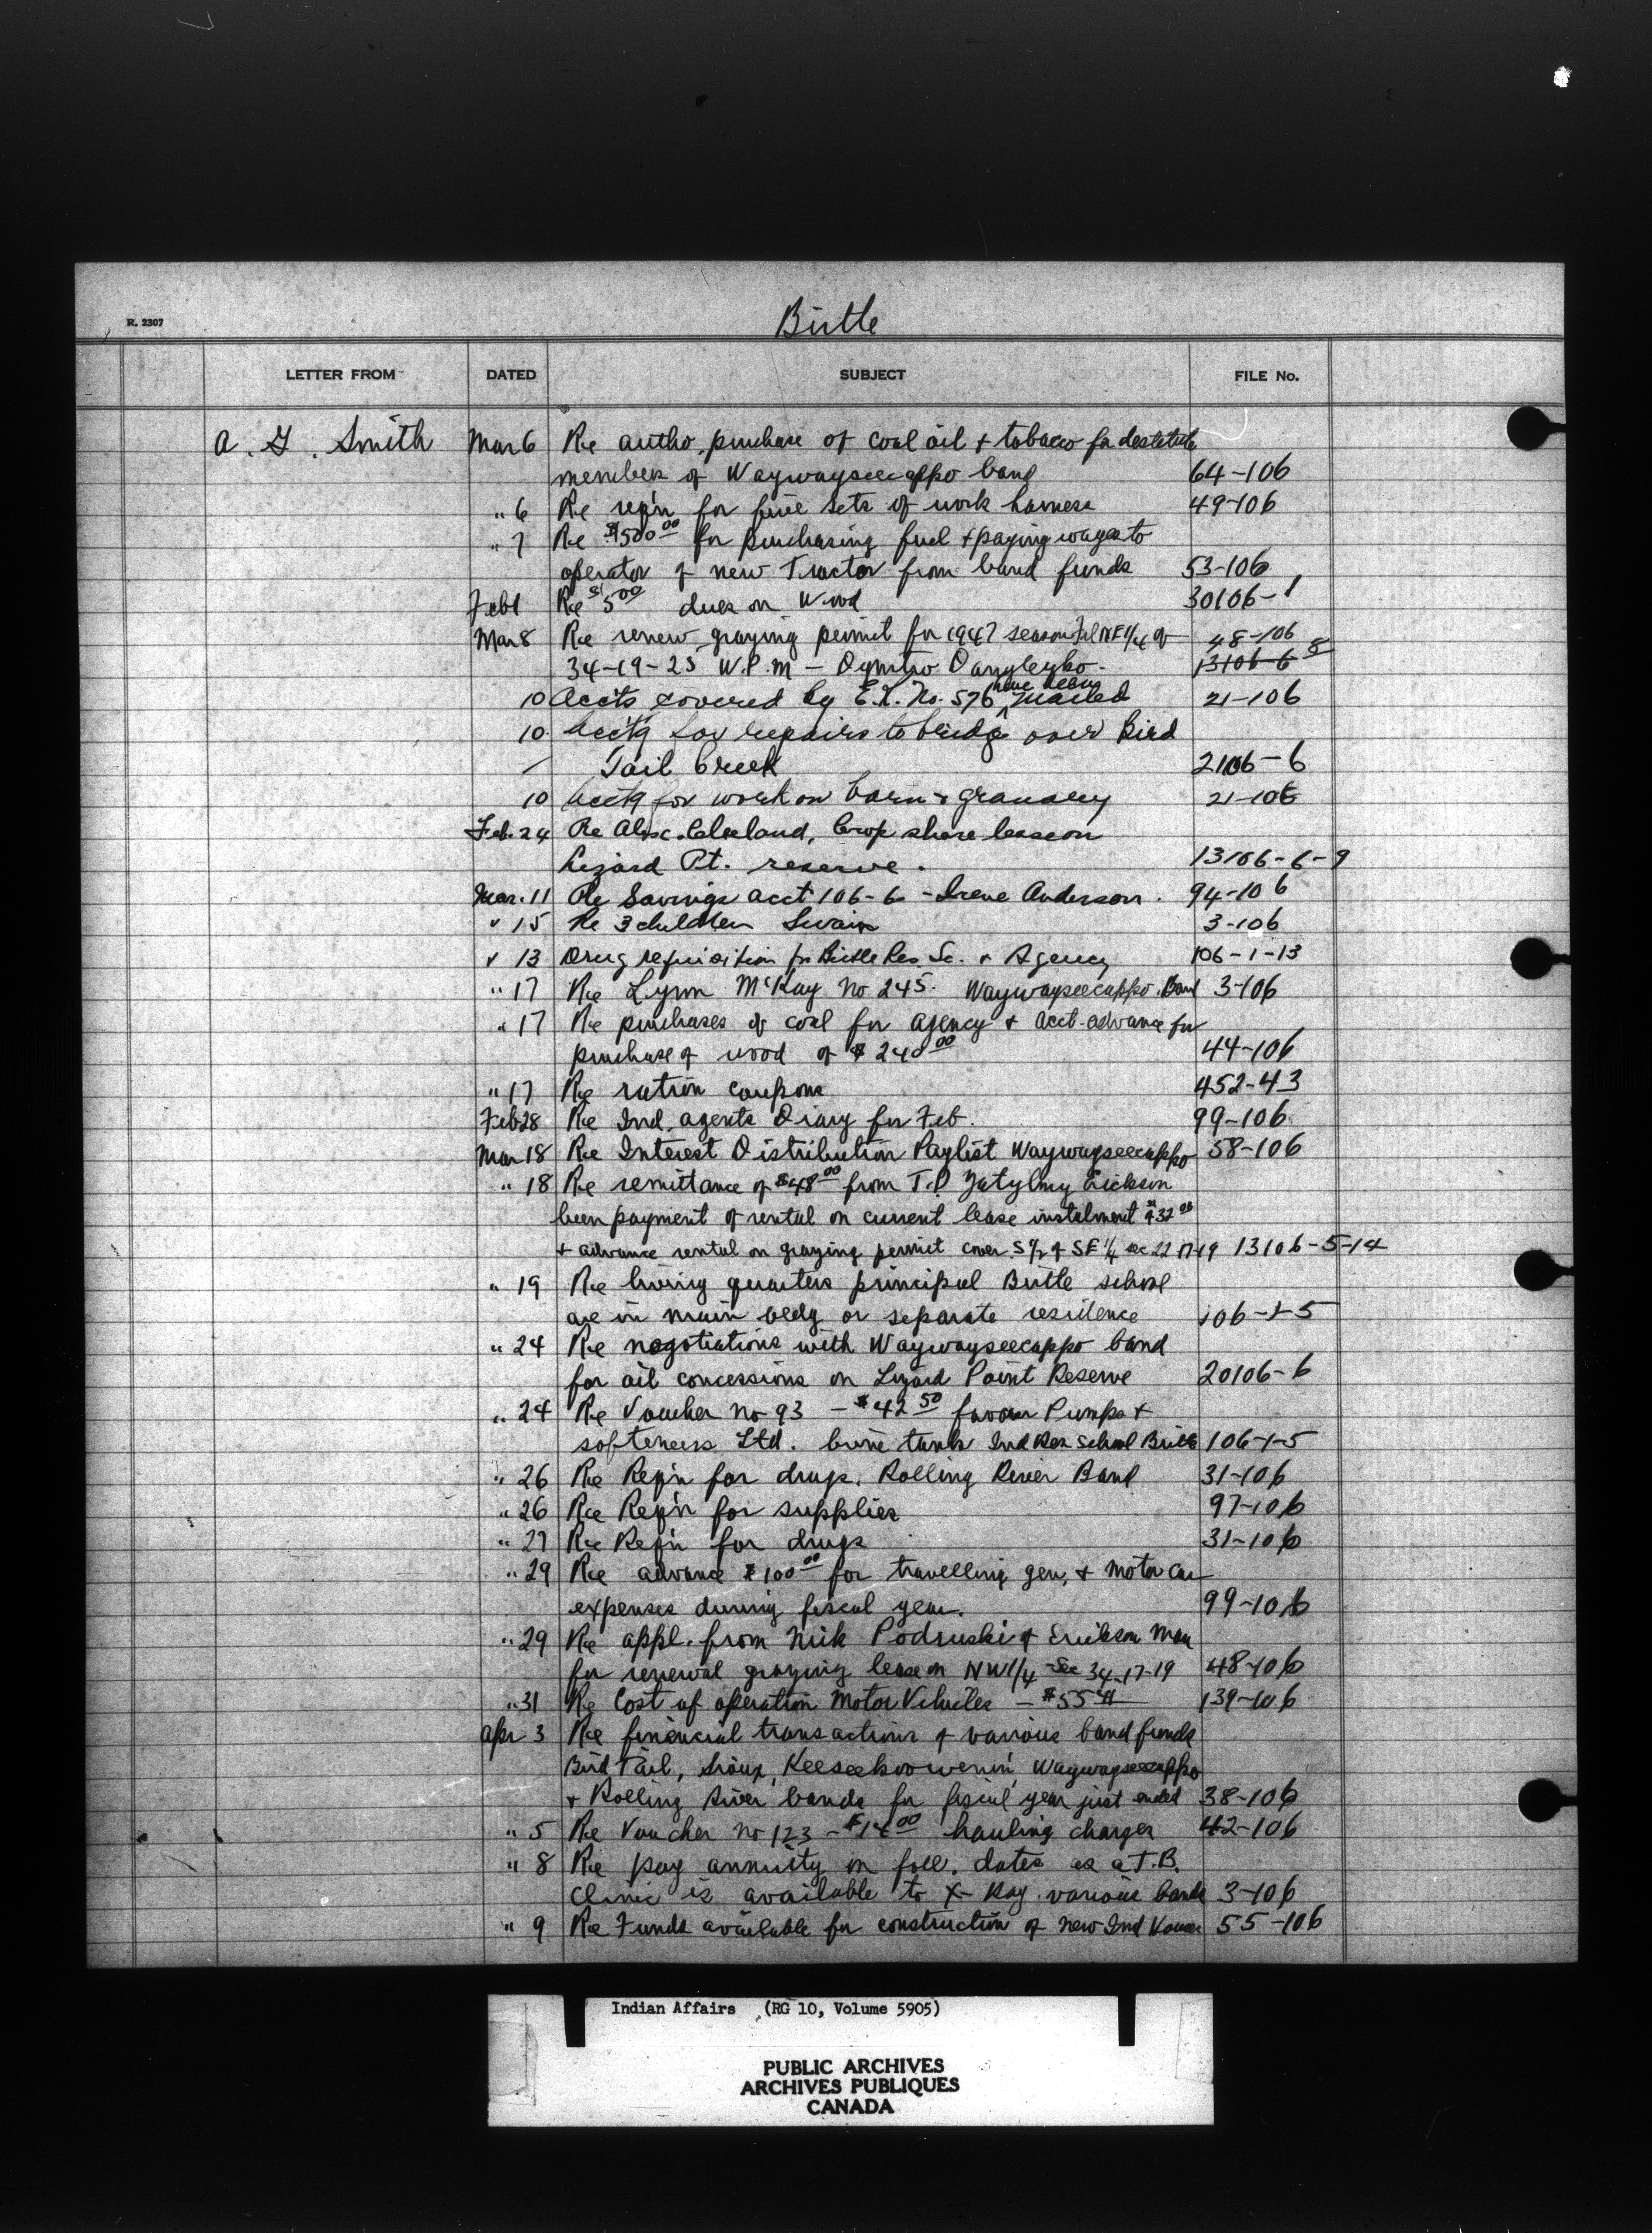 Birtle
R. 2307
LETTER FROM DATED SUBJECT FILE No.
A. G. Smith Mar 6 Re autho. purchase of coal oil + tobacco for destitute
members of Waywayseecappo band 64-106
" 6 Re req'n for five sets of work harness 49-106
" 7 Re $1500.00 for purchasing fuel + paying wages to
operator of new Tractor from band funds 53-106
Feb 1 Re $5.00 dues on Wood 30106-1
Mar 8 Re renew grazing permit for 1947 season NE 1/4 of 48-106
34-19-25 W.P.M - Dymtro 13106-6-8
10 Accts covered by E.L. No. 576 have been mailed 21-106
10 Acct'g for repairs to bridge over Bird
Tail Creek 2106-6
10 Acct'g for work on barn + granary 21-106
Feb. 24 Re Alex. Cleland, Crop share lease on
Lizard Pt. reserve. 13106-6-9
Mar. 11 Re Savings acct 106-6 - Irene Anderson. 94-106
" 15 Re 3 children Swain 3-106
" 13 Drug requisition for Birtle Res. Sc. + Agency 106-1-13
" 17 Re Lynn McKay No 245. Waywayseecappo Band 3-106
" 17 Re purchases of coal for agency + acct-advance for
purchase of wood of $240.00 44-106
" 17 Re ration coupons 452-43
Feb 28 Re Ind. agents Diary for Feb. 99-106
Mar 18 Re Interest Distribution Paylist Waywayseecappo 58-106
" 18 Re remittance of $48.00 from T.P. Erickson
been payment of rental on current lease instalment $32.00
+ advance rental on grazing permit cover. S 1/2 of SE 1/4 sec 22-17-19 13106-5-14
" 19 Re living quarters principal Birtle school
are in main bldg or separate residence 106-1-5
" 24 Re negotiations with Waywayseecappo band
for oil concessions on Lizard Point Reserve 20106-6
" 24 Re Voucher No 93 - $42.50 favour Pumps +
softeners Ltd. brine tank Ind Res School Birtle 106-1-5
" 26 Re Req'n for drugs. Rolling River Band 31-106
" 26 Re Req'n for supplies 97-106
" 27 Re Req'n for drugs 31-106
" 29 Re advance $100.00 for travelling gen. + motor car
expenses during fiscal year. 99-106
" 29 Re appl. from Nick Podruski of Erickson Man
for renewal grazing lease on NW 1/4 Sec 34-17-19 48-106
" 31 Re Cost of operation Motor Vehicles - $55 139-106
Apr 3 Re financial transactions of various band funds
Bird Tail, Sioux, Keeseekoowenin, Waywayseecappo
+ Rolling River bands for fiscal year just ended 38-106
" 5 Re Voucher No 123 - $14.00 hauling charges 42-106
" 8 Re pay annuity on foll. dates as a T.B.
Clinic is available to X-Ray various bands 3-106
" 9 Re Funds available for construction of new Ind Houses 55-106
Indian Affairs (RG 10, Volume 5905)
PUBLIC ARCHIVES
ARCHIVES PUBLIQUES
CANADA